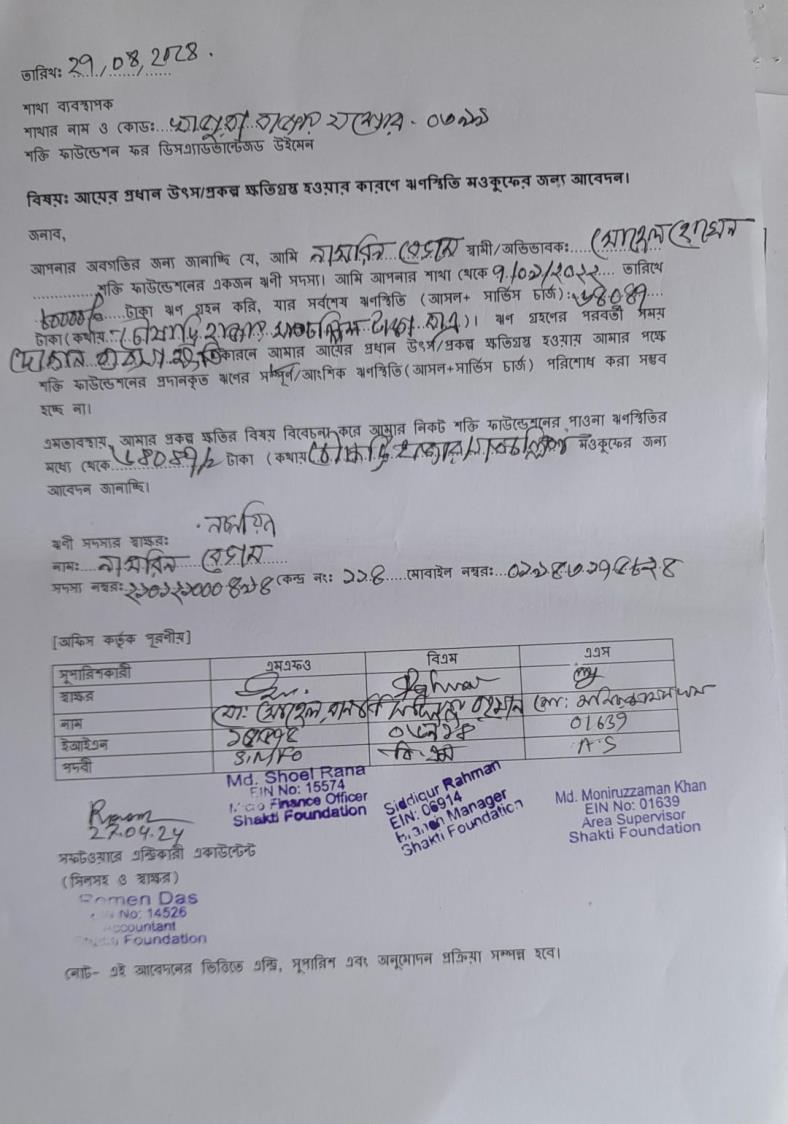 তারিখ: 29/08/2028.
শাখা ব্যবস্থাপক
শাখার নাম ও কোড: বাজার যশোর - ০৬৯৯
শক্তি ফাউন্ডেশন ফর ডিসএ্যাডভান্টেজড উইমেন
বিষয়: আয়ের প্রধান উৎস/প্রকল্প ক্ষতিগ্রস্থ হওয়ার কারণে ঋণস্থিতি মওকুফের জন্য আবেদন।
জনাব,
আপনার অবগতির জন্য জানাচ্ছি যে, আমি নাসরিন বেগম স্বামী/অভিভাবক: সোহেল হোসেন
শক্তি ফাউন্ডেশনের একজন ঋনী সদস্য। আমি আপনার শাখা থেকে ৭/০৯/২০২২ তারিখে
৮০০০০/= টাকা ঋণ গ্রহন করি, যার সর্বশেষ ঋণস্থিতি (আসল+ সার্ভিস চার্জ):
টাকা (কথায় হাজার সাতচল্লিশ টাকা মাত্র)। ঋণ গ্রহণের পরবর্তী সময়
দোকান ব্যবসা ক্ষতি কারনে আমার আয়ের প্রধান উৎস/প্রকল্প ক্ষতিগ্রস্থ হওয়ায় আমার পক্ষে
শক্তি ফাউন্ডেশনের প্রদানকৃত ঋণের সম্পূর্ন/আংশিক ঋণস্থিতি(আসল+সার্ভিস চার্জ) পরিশোধ করা সম্ভব
হচ্ছে না।
এমতাবস্থায়, আমার প্রকল্প ক্ষতির বিষয় বিবেচনা করে আমার নিকট শক্তি ফাউন্ডেশনের পাওনা ঋণস্থিতির
মধ্যে থেকে টাকা (কথায় হাজার সাতচল্লিশ মওকুফের জন্য
আবেদন জানাচ্ছি।
ঋনী সদস্যর স্বাক্ষর: নাসরিন
নাম: নাসরিন বেগম
সদস্য নম্বর: কেন্দ্র নং: ১১৪ মোবাইল নম্বর:
[অফিস কর্তৃক পূরনীয়]
সুপারিশকারী এমএফও বিএম এএস
স্বাক্ষর
নাম মো: সোহেল রানা সিদ্দিকুর রহমান মো: মনিরুজ্জামান খান
ইআইএন 01639
পদবী S.MFO বি.এম A.S
Md. Shoel Rana
EIN No: 15574
Micro Finance Officer
Shakti Foundation
Siddiqur Rahman
EIN: 06914
Branch Manager
Shakti Foundation
Md. Moniruzzaman Khan
EIN No: 01639
Area Supervisor
Shakti Foundation
27.04.24
সফটওয়ারে এন্ট্রিকারী একাউন্টেন্ট
(সিলসহ ও স্বাক্ষর)
Romen Das
No: 14526
Accountant
Shakti Foundation
নোট- এই আবেদনের ভিত্তিতে এন্ট্রি, সুপারিশ এবং অনুমোদন প্রক্রিয়া সম্পন্ন হবে।